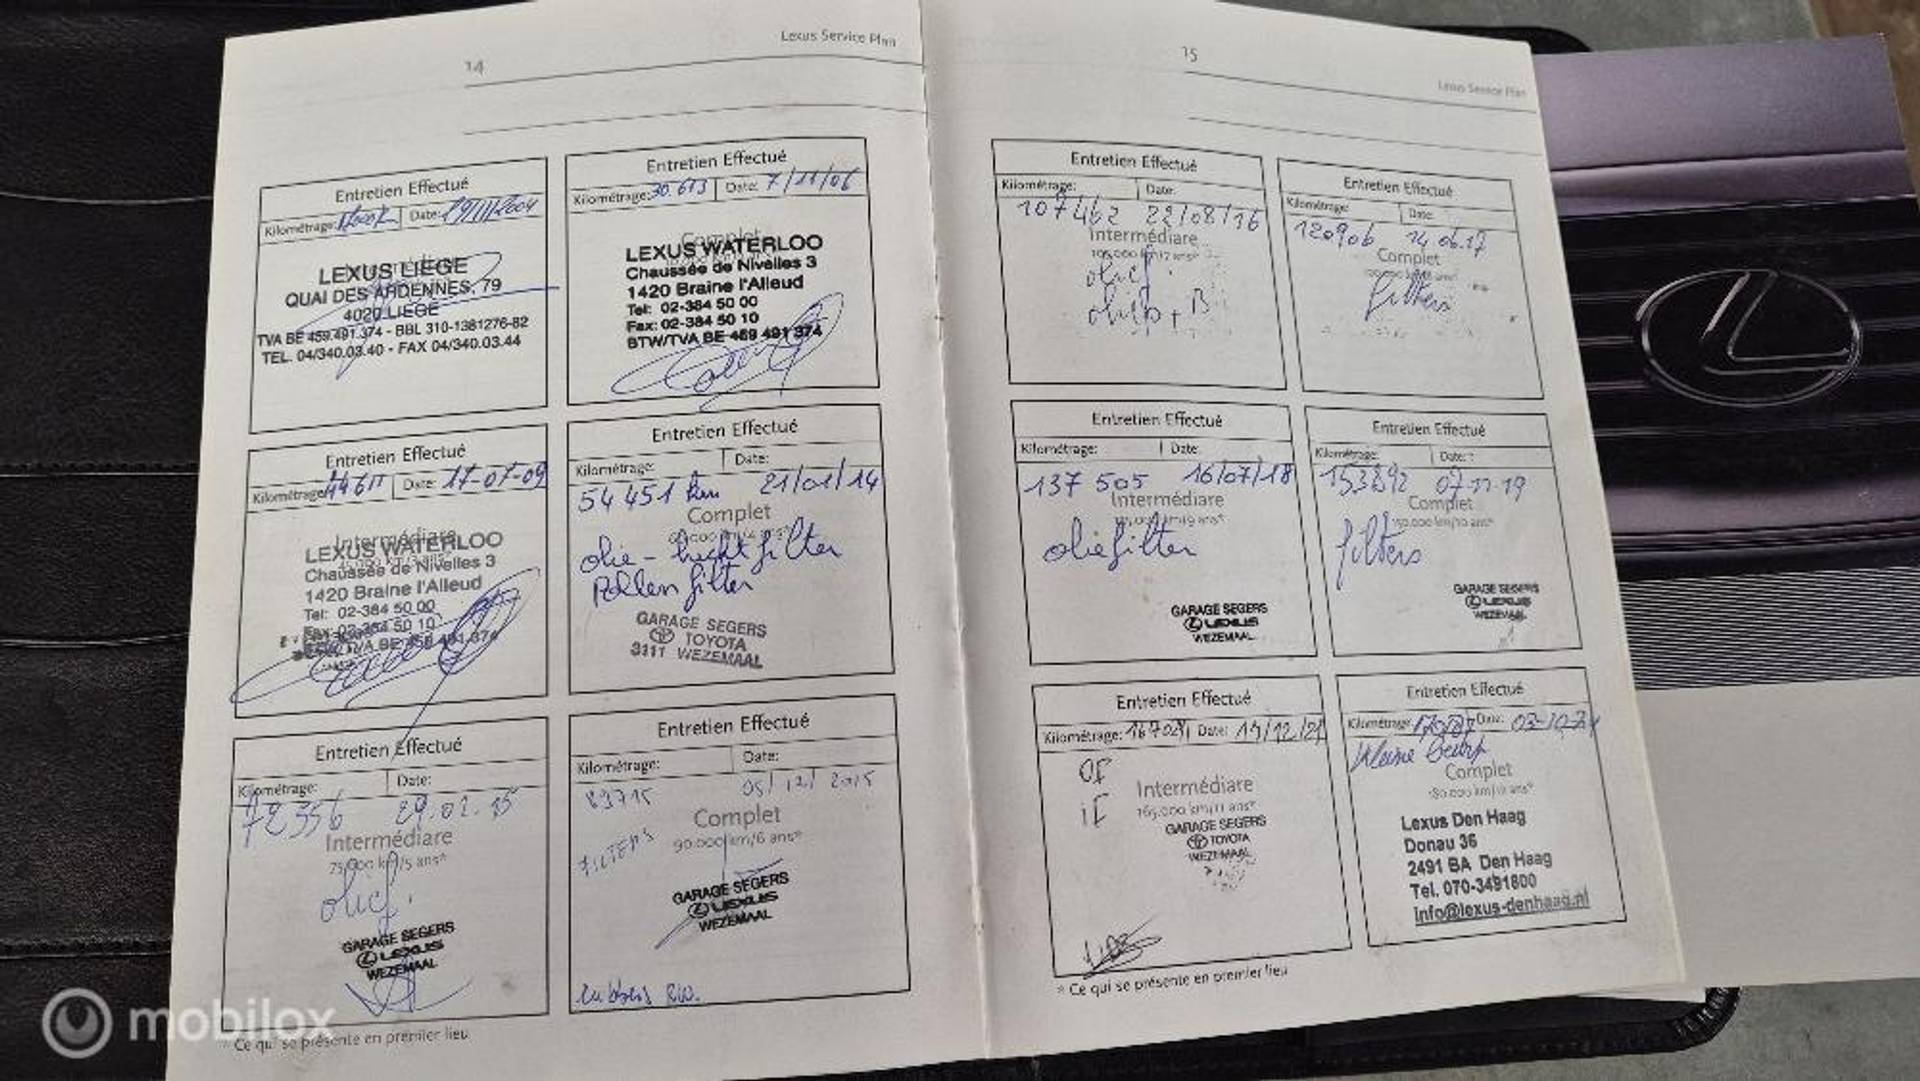 14
Lexus Service Plan
Entretien Effectué
Kilométrage: Date: 19/11/2004
LEXUS LIEGE
QUAI DES ARDENNES, 79
4020 LIEGE
TVA BE 459.491.374 - BBL 310-1381276-82
TEL. 04/340.03.40 - FAX 04/340.03.44
Entretien Effectué
Kilométrage: 30.613 Date: 7/11/06
Complet
LEXUS WATERLOO
Chaussée de Nivelles 3
1420 Braine l'Alleud
Tel: 02-384 50 00
Fax: 02-384 50 10
BTW/TVA BE 459 491 374
Entretien Effectué
Kilométrage: Date: 17-07-09
Intermédiaire
LEXUS WATERLOO
Chaussée de Nivelles 3
1420 Braine l'Alleud
Tel: 02-384 50 00
Fax: 02-384 50 10
TVA BE 459 491 374
Entretien Effectué
Kilométrage: Date:
54 451 km 21/01/14
Complet
olie - lucht filter
Pollen filter
GARAGE SEGERS
TOYOTA
3111 WEZEMAAL
Entretien Effectué
Kilométrage: Date:
72356 29.02.15
Intermédiare
75.000 km/5 ans*
GARAGE SEGERS
LEXUS
WEZEMAAL
Entretien Effectué
Kilométrage: Date:
89715 05/12/2015
Complet
90.000 km/6 ans*
FILTERS
GARAGE SEGERS
LEXUS
WEZEMAAL
* Ce qui se présente en premier lieu
15
Lexus Service Plan
Entretien Effectué
Kilométrage: Date:
107462 22/08/16
Intermédiare
105.000 km/7 ans*
Entretien Effectué
Kilométrage: Date:
120906 14.06.17
Complet
filters
Entretien Effectué
Kilométrage: Date:
137 505 16/07/18
Intermédiare
oliefilter
GARAGE SEGERS
LEXUS
WEZEMAAL
Entretien Effectué
Kilométrage: Date:
153892 07-11-19
Complet
150.000 km/10 ans*
filters
GARAGE SEGERS
LEXUS
WEZEMAAL
Entretien Effectué
Kilométrage: Date: 14/12/21
OF
iF
Intermédiare
165.000 km/11 ans*
GARAGE SEGERS
TOYOTA
WEZEMAAL
Entretien Effectué
Kilométrage: Date:
Kleine Beurt
Complet
Lexus Den Haag
Donau 36
2491 BA Den Haag
Tel. 070-3491800
info@lexus-denhaag.nl
* Ce qui se présente en premier lieu
mobilox